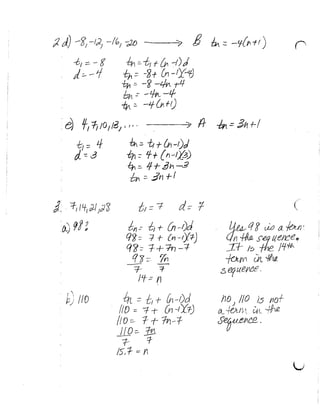 2 d) -8, -12, -16, -20 → B tn = -4(n+1)
t₁ = -8 tn = t₁ + (n-1)d
d = -4 tn = -8 + (n-1)(-4)
tn = -8 -4n +4
tn = -4n -4
tn = -4(n+1)
e) 4, 7, 10, 13, .... → A tn = 3n+1
t₁ = 4 tn = t₁ + (n-1)d
d = 3 tn = 4 + (n-1)(3)
tn = 4 + 3n -3
tn = 3n+1
3. 7, 14, 21, 28 t₁ = 7 d = 7
a) 98? tn = t₁ + (n-1)d Yes. 98 is a term
98 = 7 + (n-1)(7) in the sequence.
98 = 7 + 7n -7 It is the 14th
98 = 7n term in the
7 7 sequence.
14 = n
b) 110 tn = t₁ + (n-1)d no, 110 is not
110 = 7 + (n-1)(7) a term in the
110 = 7 + 7n -7 sequence.
110 = 7n
7 7
15.7 = n